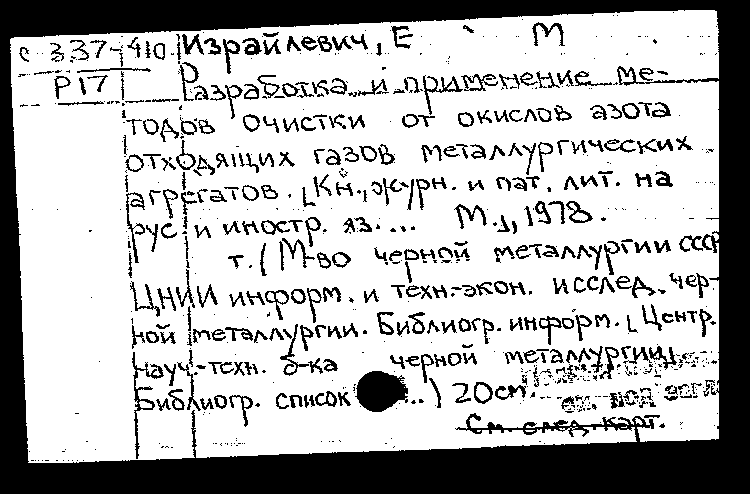 С 337-410 Израйлевич, Е М
Р17 Разработка и применение ме-
тодов очистки от окислов азота
отходящих газов металлургических
агрегатов. [Кн., журн. и пат. лит. на
рус и иностр. яз.... М.], 1978.
т. (М-во черной металлургии СССР
ЦНИИ информ. и техн.-экон. исслед. чер-
ной металлургии. Библиогр. информ. [Центр.
науч.-техн. б-ка черной металлургии].
Библиогр. список ...) 20см.
см. под загл
См. след. карт.